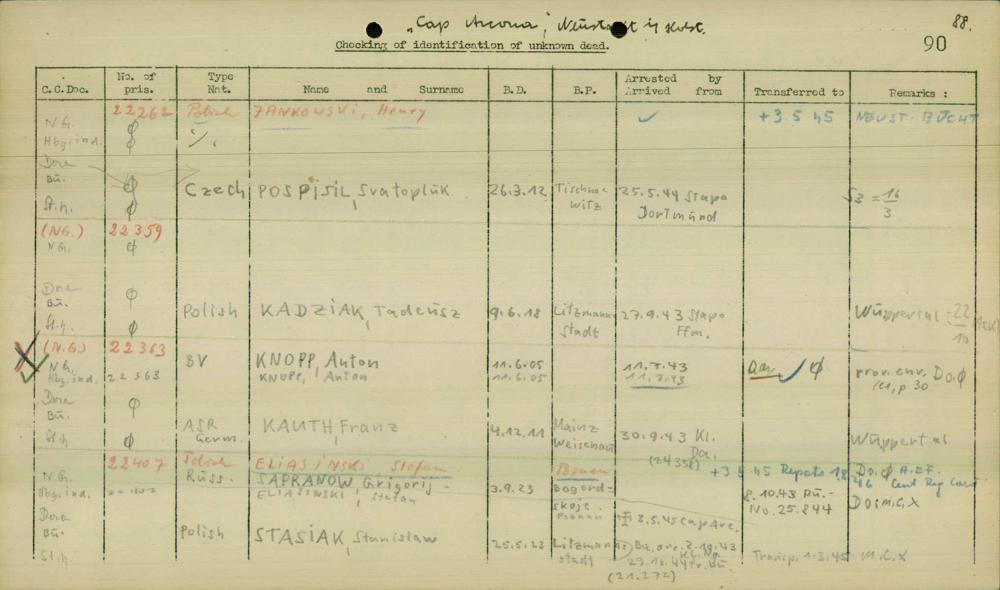 „Cap Arcona", Neustadt i/ Holst.
88.
90
Checking of identification of unknown dead.
C.C.Doc. No. of pris. Type Nat. Name and Surname B.D. B.P. Arrested by Arrived from Transferred to Remarks :
22262 Polish JANKOWSKI, Henry ✓ +3.5.45 NEUST. BUCHT
N.G. ϕ
Hbg.ind. ϕ
Dora
Bü. ϕ Czech POSPISIL, Svatoplük 26.3.12 Tischno= witz 25.5.44 Stapo Dortmünd Sz = 16/3
St.h. ϕ
(NG.) 22359
N.G. ϕ
Dora
Bü. ϕ
Polish KADZIAK, Tadeüsz 9.6.18 Litzmann stadt 27.9.43 Stapo Ffm. Wüppertal 22/10
St.h. ϕ
(N.G.) 22363
N.G. BV KNOPP, Anton 11.6.05 11.7.43 ✓ ϕ prov. env. Do.ϕ
Hbg.ind. 22363 KNOPP, Anton 11.6.05 11.7.43 p 30
Dora
Bü. ϕ
ASR Germ. KAUTH, Franz 4.12.11 Mainz Weisenau 30.9.43 Kl. Da. (24358) Wüppertal
St.h ϕ
22407 Polish ELIASINSKI, Stefan Poznan +3.5.45 Do.ϕ A.E.F.
N.G. Russ. SAPRANOW, Grigorij- 3.9.23 Bogord= skoje 8.10.43 Bü.- No. 25.844 46 Cent Reg Card
Hbg.ind. 22407 ELIASINSKI, Stefan Poznan 3.5.45 Cap Arc. Do m.C.X
Dora
Bü. Polish STASIAK, Stanislaw 25.5.23 Litzmann stadt Bü. 29.10.44 Tr. Bü. (21.272) Transp. 1.3.45 M.C.X
St.h.